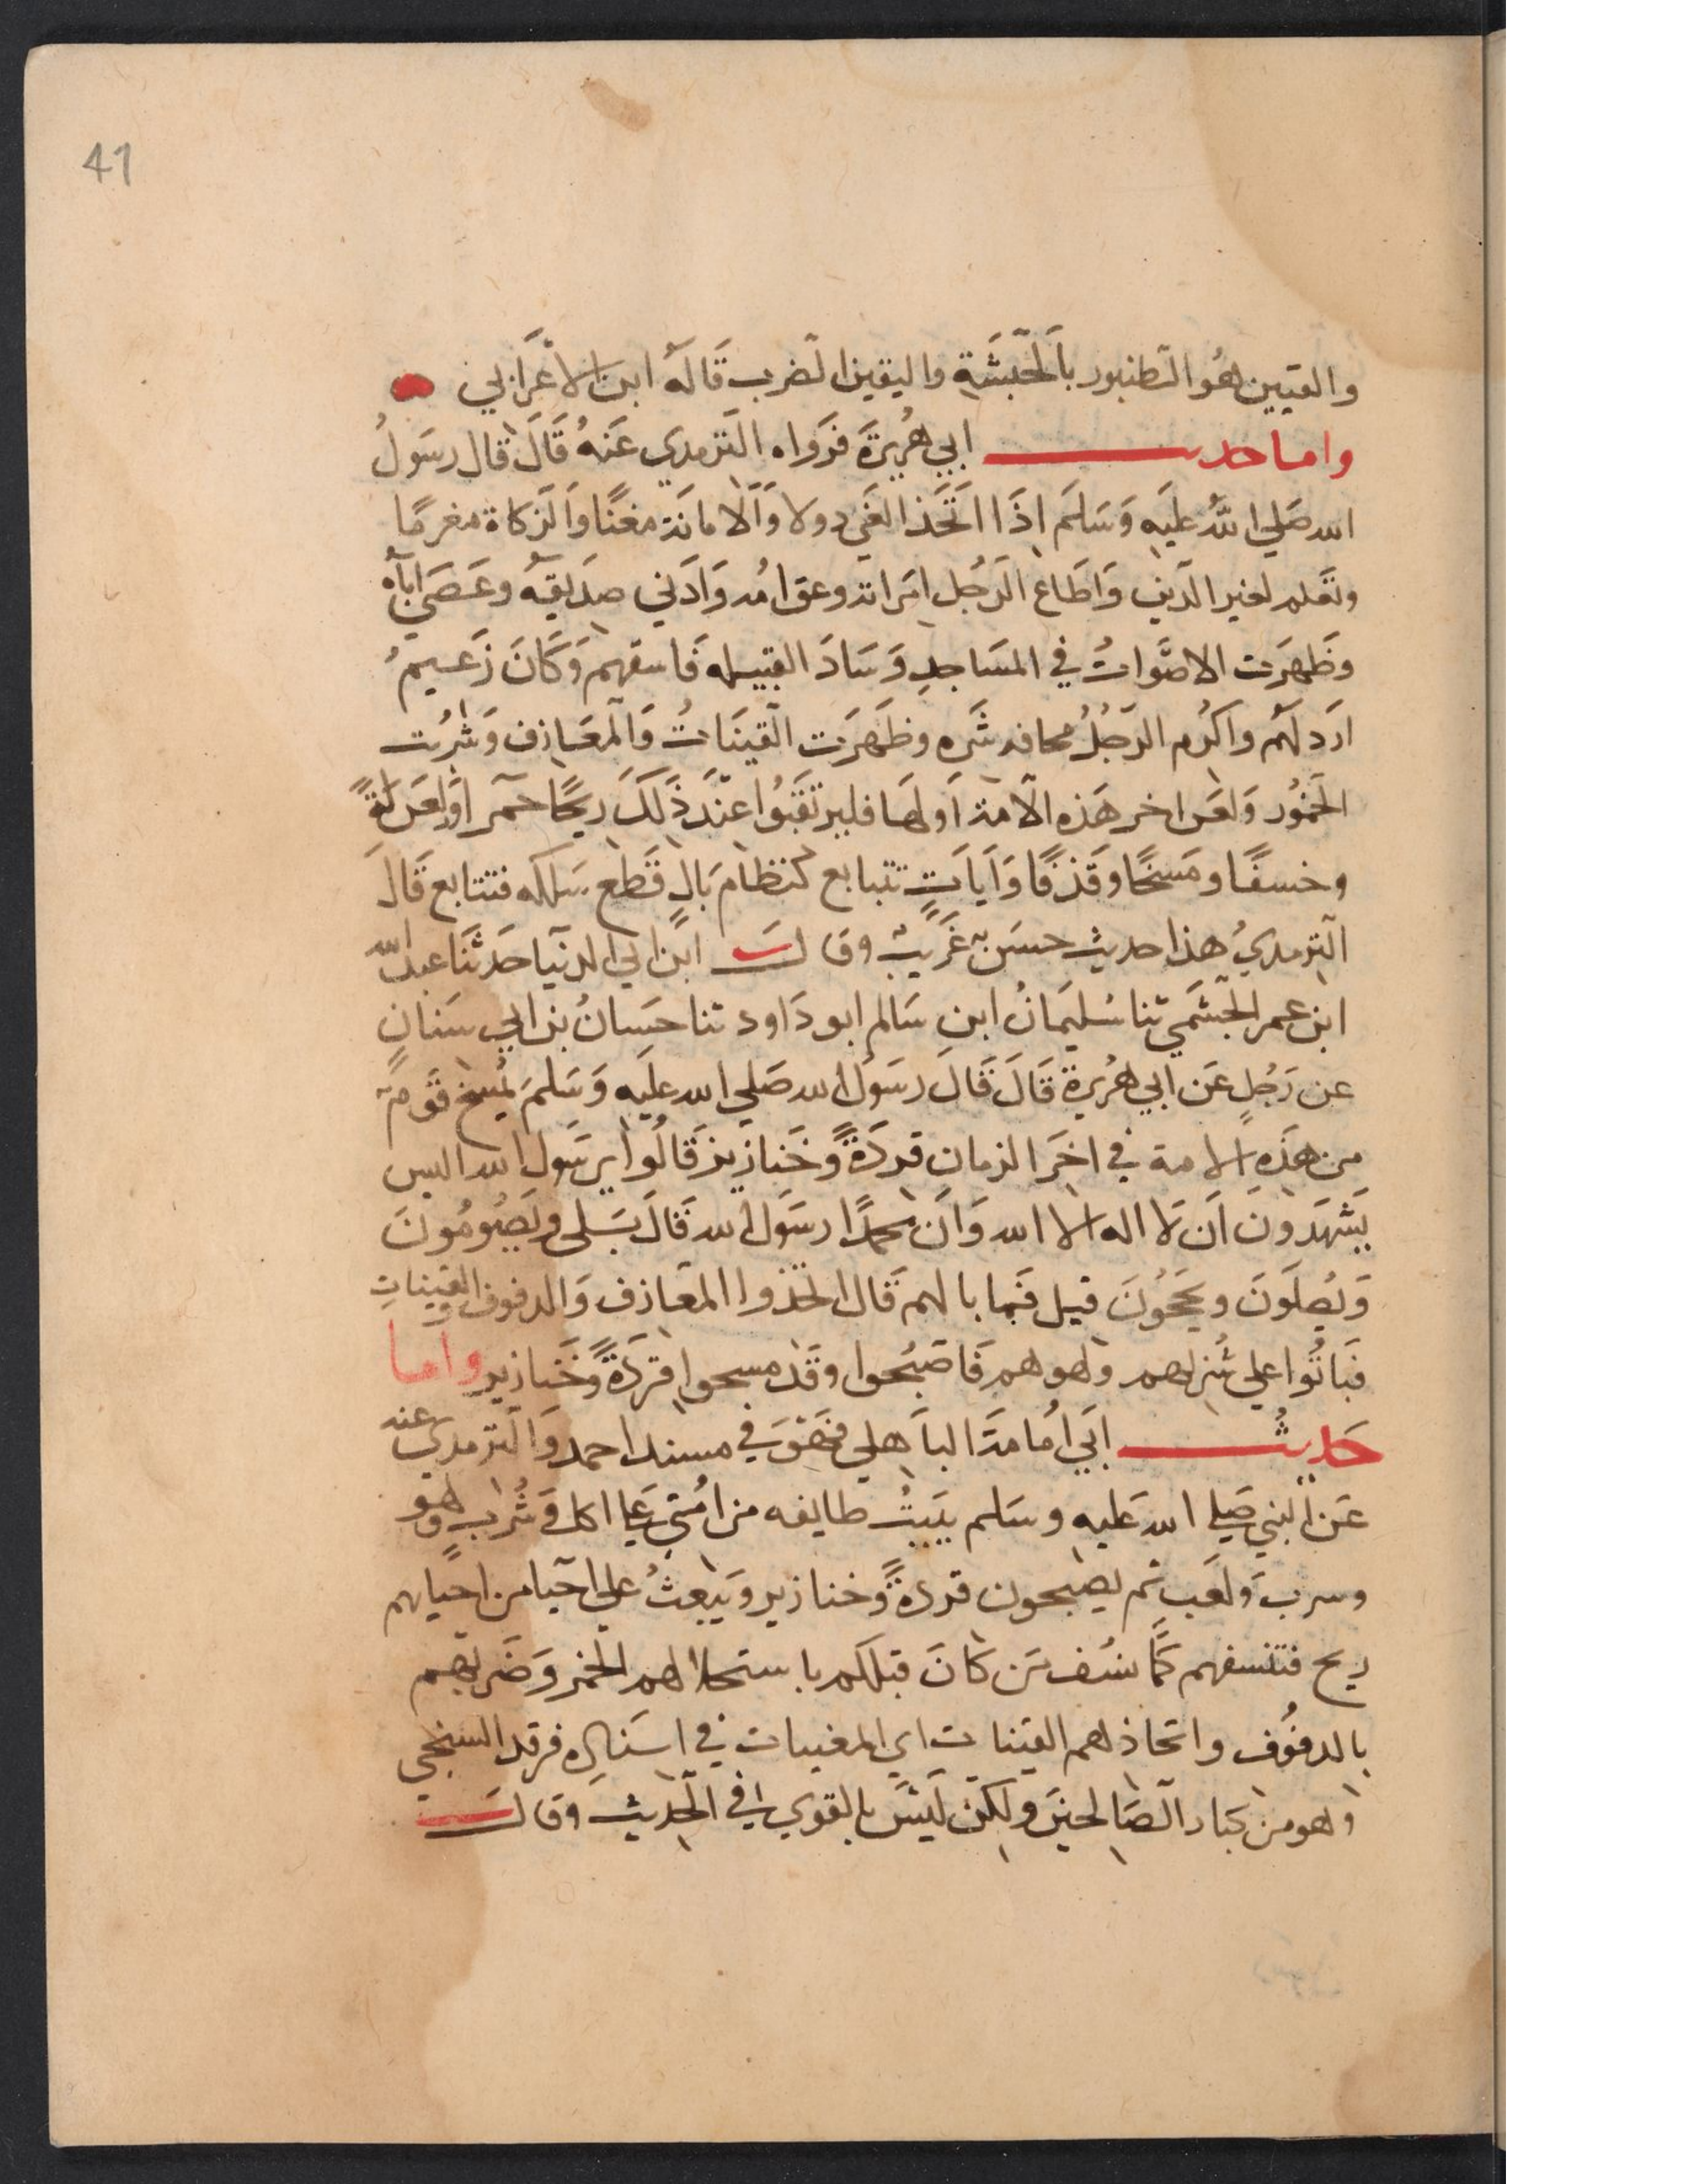 41
والقنين هو الطنبور بالحبشة واليقين الضرب قاله ابن الاعرابي
واما حديث ابي هريرة فرواه الترمدي عنه قال قال رسول
الله صلي الله عليه وسلم اذا اتخذ الفي دولا والامانة مغنما والزكاة مغرما
وتعلم لغير الدين واطاع الرجل امراته وعق امه وادني صديقه وعصي اباه
وظهرت الاصوات في المساجد وساد القبيله فاسقهم وكان زعيم
اردلهم واكرم الرجل مخافه شره وظهرت القينات والمعازف وشربت
الخمور ولعن اخر هذه الامة اولها فليرتقبوا عند ذلك ريحا حمرا وزلزلة
وخسفا ومسخا وقذفا وايات تتابع كنظام بال قطع سلكه فتتابع قال
الترمدي هذا حديث حسن غريب وقال ابن ابي الدنيا حدثنا عبد الله
ابن عمر الجشمي ثنا سليمان ابن سالم ابو داود ثنا حسان بن ابي سنان
عن رجل عن ابي هريرة قال قال رسول الله صلي الله عليه وسلم يمسخ قوم
من هذه الامة في اخر الزمان قردة وخنازير قالوا يرسول الله اليس
يشهدون ان لا اله الا الله وان محمدا رسول الله قال بلي ويصومون
ويصلون ويحجون قيل فما بالهم قال اتخذوا المعازف والدفوف والقينات
فباتوا علي شربهم ولهوهم فاصبحوا وقد مسحوا قردة وخنازير واما
حديث ابي امامة الباهلي فهو في مسند احمد والترمدي عنه
عن النبي صلي الله عليه وسلم يبيت طايفه من امتي علي اكل وشرب ولهو
وسرب ولعب ثم يصبحون قردة وخنازير ويبعث علي احيا من احيايهم
ريح فتنسفهم كما نسف من كان قبلكم باستحلالهم الخمر وضربهم
بالدفوف واتخاذهم القينات اي المغنيات في اسناده فرقد السبخي
وهو من كبار الصالحين ولكن ليس بالقوي في الحديث وقال